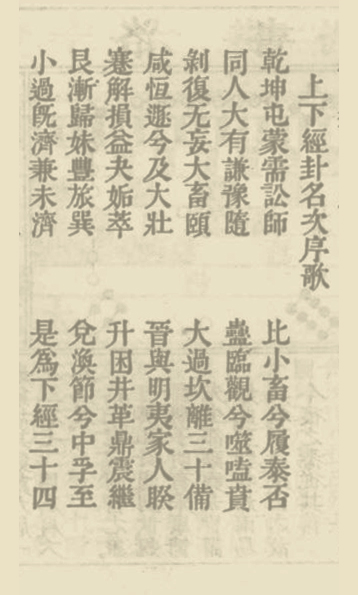 上下經卦名次序歌
乾坤屯蒙需訟師 比小畜兮履泰否
同人大有謙豫隨 蠱臨觀兮噬嗑賁
剝復无妄大畜頤 大過坎離三十備
咸恒遯兮及大壯 晉與明夷家人睽
蹇解損益夬姤萃 升困井革鼎震繼
艮漸歸妹豐旅巽 兌渙節兮中孚至
小過旣濟兼未濟 是爲下經三十四